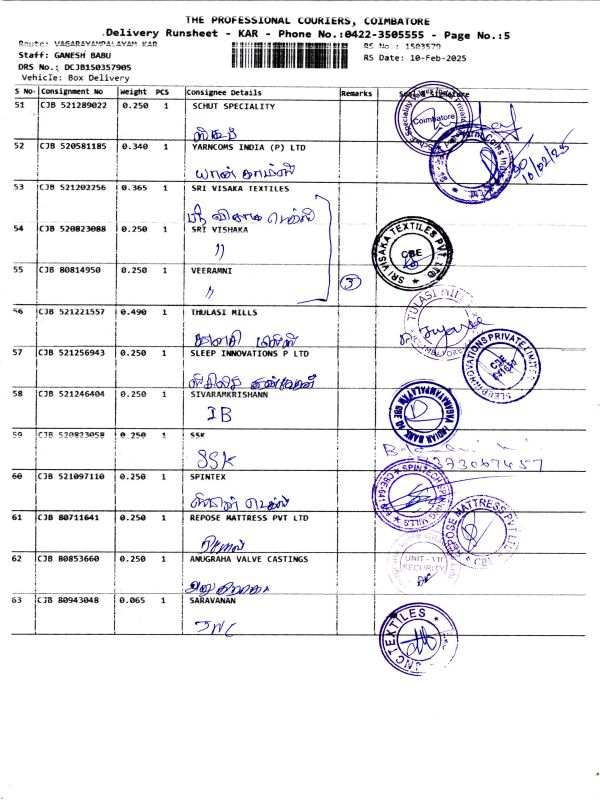 THE PROFESSIONAL COURIERS, COIMBATORE
Delivery Runsheet - KAR - Phone No.:0422-3505555 - Page No.:5
Route: VAGARAYAMPALAYAM KAR
RS No.: 1503579
Staff: GANESH BABU
RS Date: 10-Feb-2025
DRS No.: DCJB150357905
Vehicle: Box Delivery
S No. Consignment No Weight PCS Consignee Details Remarks Seal Signature
51 CJB 521289022 0.250 1 SCHUT SPECIALITY
Coimbatore
52 CJB 520581185 0.340 1 YARNCOMS INDIA (P) LTD
யான் காம்ஸ்
10/02/25
53 CJB 521202256 0.365 1 SRI VISAKA TEXTILES
ஸ்ரீ விசாகா டெக்ஸ்
54 CJB 520823088 0.250 1 SRI VISHAKA
"
SRI VISAKA TEXTILES PVT. LTD
CBE
55 CJB 80814950 0.250 1 VEERAMNI
"
3
56 CJB 521221557 0.490 1 THULASI MILLS
TULASI MILLS
57 CJB 521256943 0.250 1 SLEEP INNOVATIONS P LTD
SLEEP INNOVATIONS PRIVATE LIMITED
CBE
58 CJB 521246404 0.250 1 SIVARAMKRISHANN
IB
INDIAN BANK
59 CJB 520823058 0.250 1 SSK
SSK
60 CJB 521097110 0.250 1 SPINTEX
61 CJB 80711641 0.250 1 REPOSE MATTRESS PVT LTD
REPOSE MATTRESS PVT LTD
CBE
62 CJB 80853660 0.250 1 ANUGRAHA VALVE CASTINGS
UNIT - VII
SECURITY
63 CJB 80943048 0.065 1 SARAVANAN
JNC
JNC TEXTILES